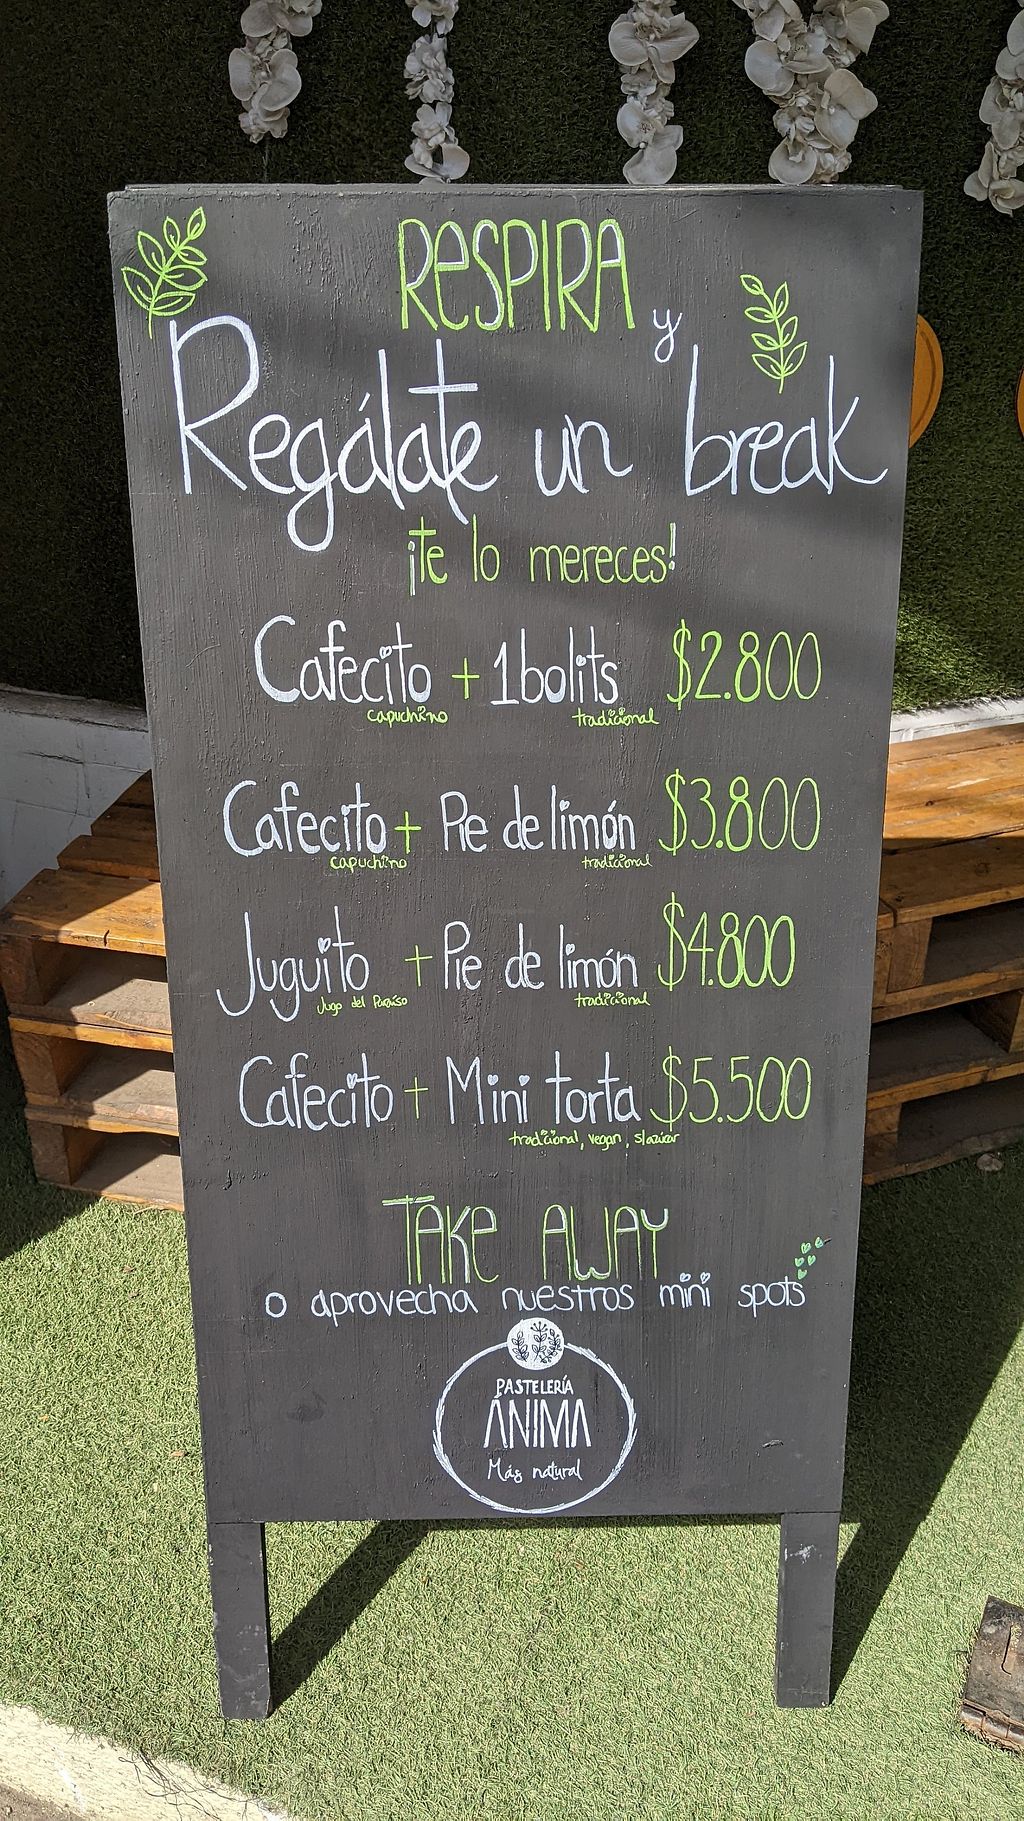 RESPIRA y
Regálate un break
¡Te lo mereces!
Cafecito + 1 bolits $2.800
capuchino tradicional
Cafecito + Pie de limón $3.800
capuchino tradicional
Juguito + Pie de limón $4.800
Jugo del Paraíso tradicional
Cafecito + Mini torta $5.500
tradicional, vegan, s/azúcar
TAKE AWAY
o aprovecha nuestros mini spots
PASTELERÍA
ÁNIMA
Más natural